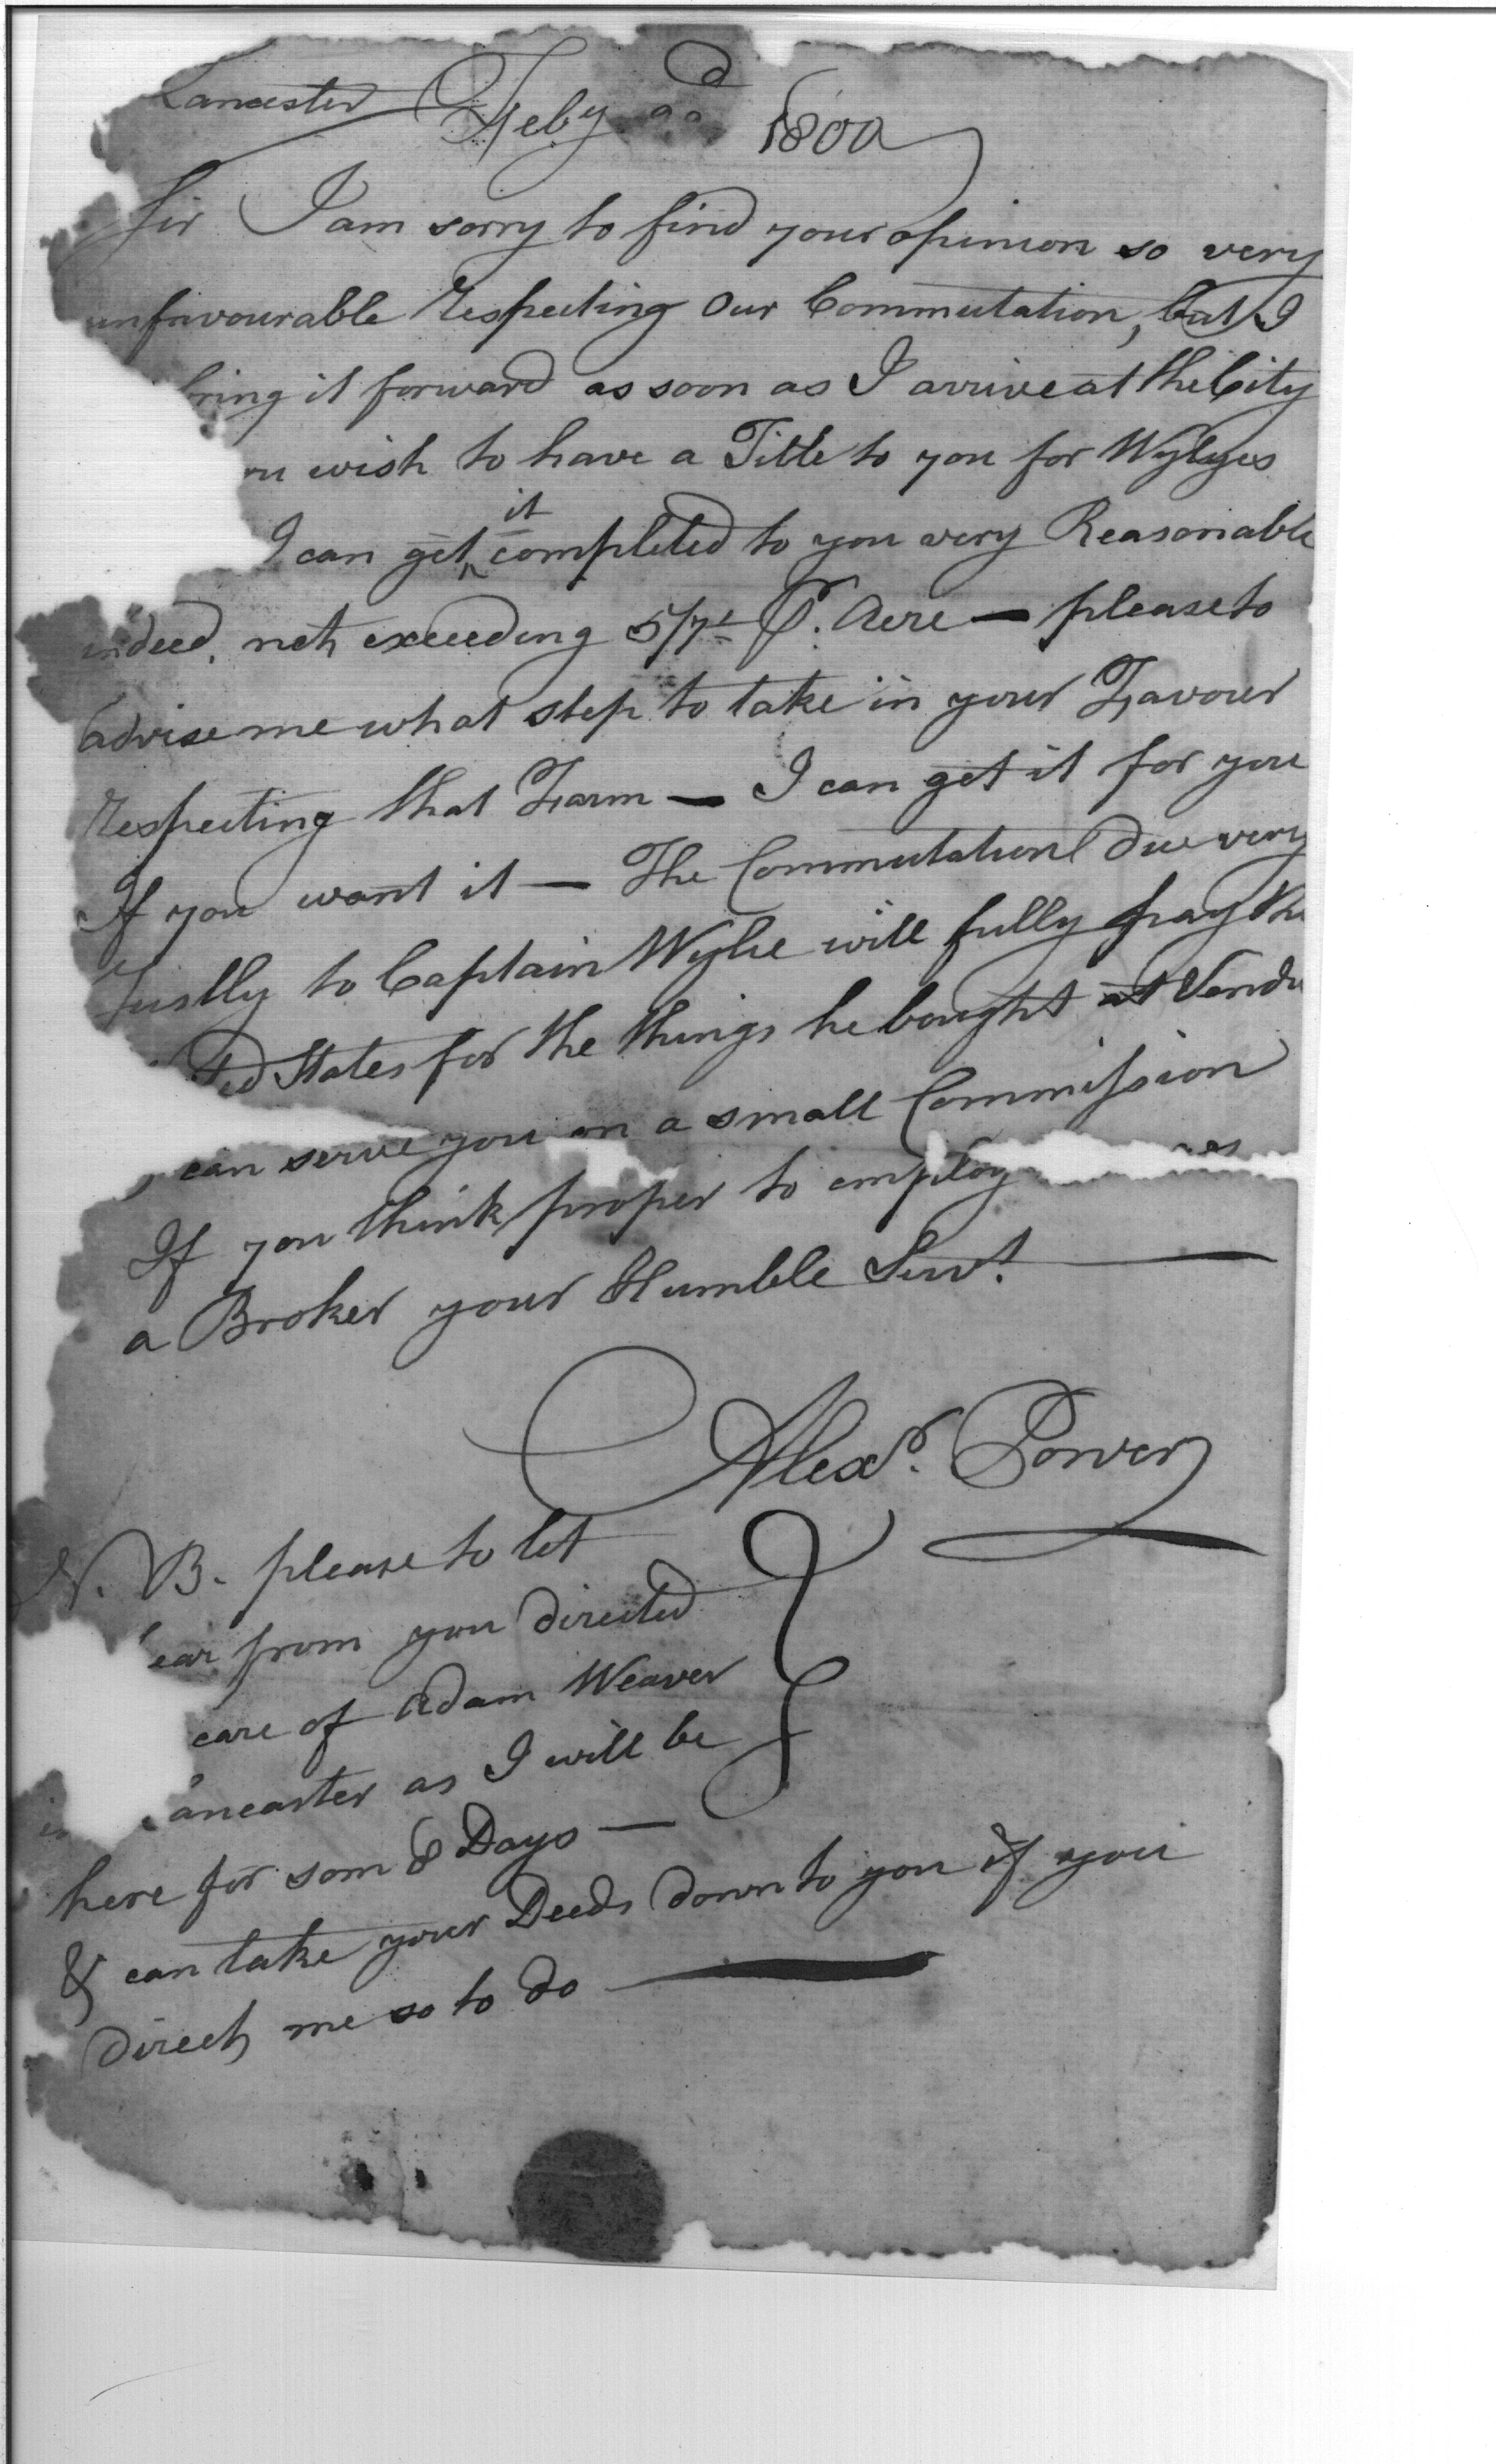 Lancaster Feby 1800
Sir I am sorry to find your opinion so very
unfavourable respecting Our Commutation, but I
bring it forward as soon as I arrive at the City
you wish to have a Title to you for Wylyes
I can get it completed to you very Reasonable
indeed, not exceeding 5/7 Pr. Acre — please to
advise me what step to take in your Favour
respecting that Farm — I can get it for you
If you want it — The Commutation due very
Justly to Captain Wylie will fully pay the
ted States for the things he bought at Vendu
can serve you on a small Commission
If you think proper to employ
a Broker your Humble Servt.
Alexr. Power
N. B. please to let
ear from you directed
care of Adam Weaver
Lancaster as I will be
here for som 8 Days —
& can take your Deeds down to you if you
direct me so to do —